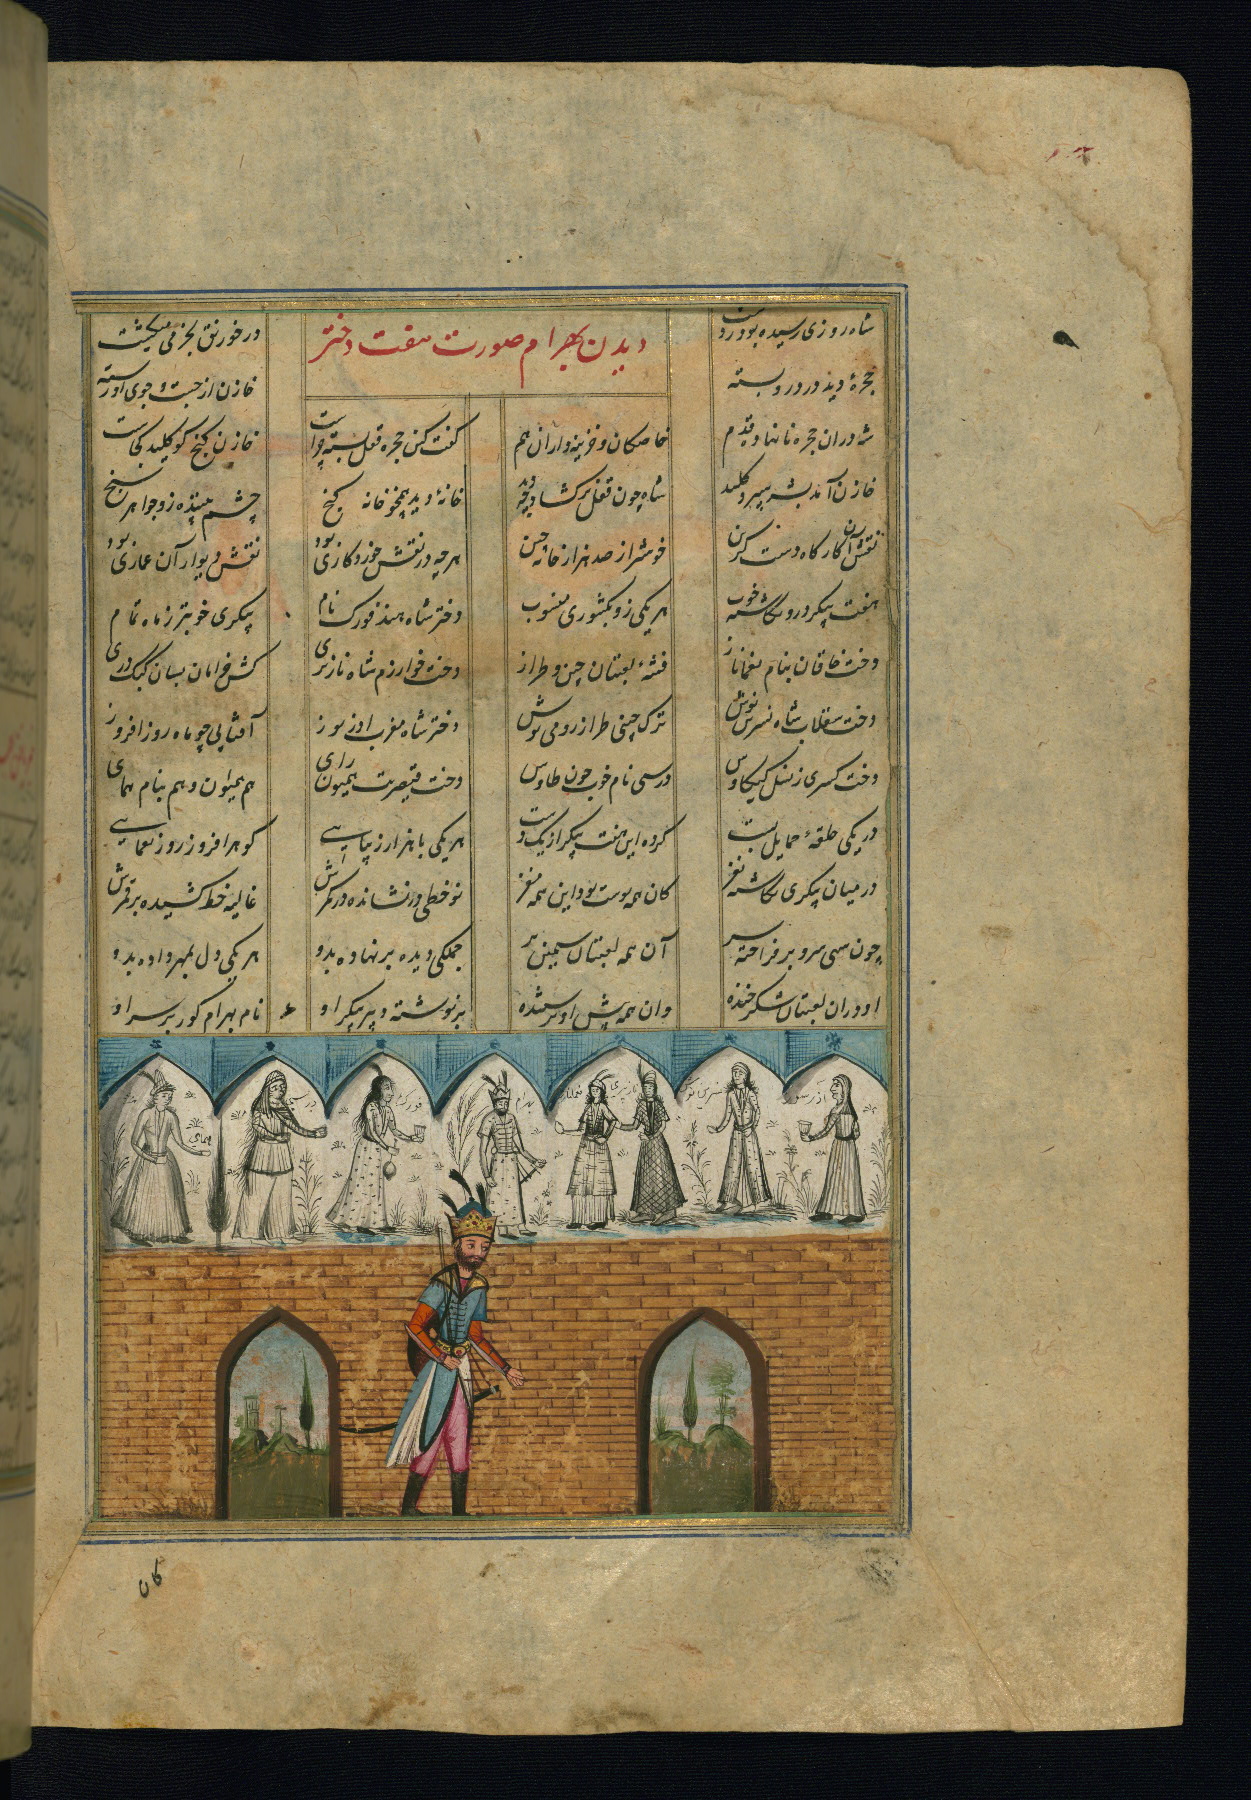 شاه روزی رسیده بود ز دشت
در خورنق بخرمی میگشت
دیدن بهرام صورت هفت دختر
حجرهٔ دید در در و بسته
خازن از جست و جوی او رسته
شه در آن حجره نانهاده قدم
خاصگان و خزینه داران هم
گفت کین حجره قفل بسته چراست
خازن گنج کو کلید کجاست
خازن آمد بشه سپرد کلید
شاه چون قفل برگشاد چه دید
خانهٔ دید همچو خانه گنج
چشم بیننده زو جواهر سنج
خوشتر از صد نگارخانه چین
نقش آن کارگاه دست گزین
هر چه در نقش خورده کاری بود
نقش دیوار آن عماری بود
هفت پیکر درو نگاشته خوب
هر یکی زو بکشوری منسوب
دختر شاه هند فورک نام
پیکری خوبتر ز ماه تمام
دخت خاقان بنام یغماناز
فتنهٔ لعبتان چین و طراز
دخت خوارزم شاه نازپری
کش خرامان بسان کبک دری
دخت سقلاب شاه نسرین نوش
ترک چینی طراز رومی پوش
دختر شاه مغرب آذریون
آفتابی چو ماه روز افزون
دخت کسری ز نسل کیکاوس
درستی نام خوب چون طاوس
دخت قیصر همایون رای
هم همایون و هم بنام همای
در یکی حلقهٔ حمایل بست
کرده این هفت پیکر از یک دست
هر یکی با هزار زیبایی
گوهر افروز روز نمایی
در میان پیکری نگاشته نغز
کان همه پوست بود این همه مغز
نوخطی در نشانده در کمرش
غالیه خط کشیده بر قمرش
چون سهی سرو بر فراخته سر
آن همه لعبتان سیمین بر
جملگی دیده بر نهاده بدو
هر یکی دل بمهر داده بدو
او در آن لعبتان شکر خنده
وان همه پیش او پرستنده
بر نوشته دبیر پیکر او
نام بهرام گور بر سر او
همای
درستی
فورک
بهرام
یغماناز
نازپری
نسرین نوش
کان